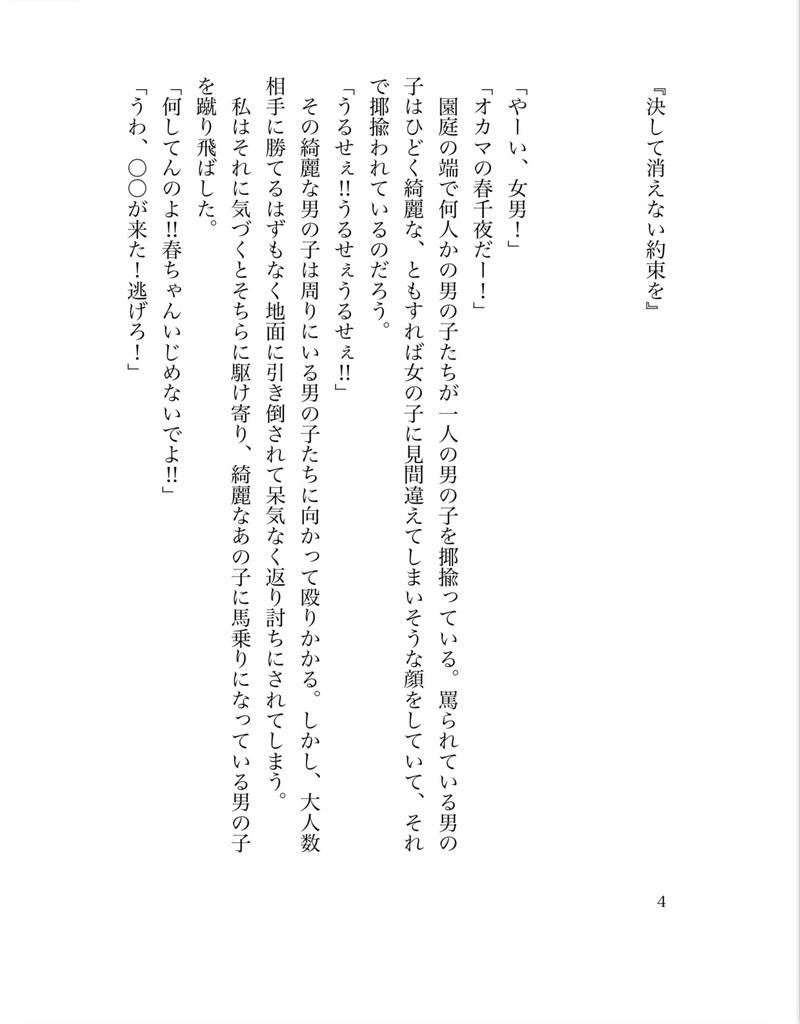 『決して消えない約束を』
「やーい、女男！」
「オカマの春千夜だー！」
　園庭の端で何人かの男の子たちが一人の男の子を揶揄っている。罵られている男の
子はひどく綺麗な、ともすれば女の子に見間違えてしまいそうな顔をしていて、それ
で揶揄われているのだろう。
「うるせぇ!!うるせぇうるせぇ!!」
　その綺麗な男の子は周りにいる男の子たちに向かって殴りかかる。しかし、大人数
相手に勝てるはずもなく地面に引き倒されて呆気なく返り討ちにされてしまう。
　私はそれに気づくとそちらに駆け寄り、綺麗なあの子に馬乗りになっている男の子
を蹴り飛ばした。
「何してんのよ!!春ちゃんいじめないでよ!!」
「うわ、〇〇が来た！逃げろ！」
4